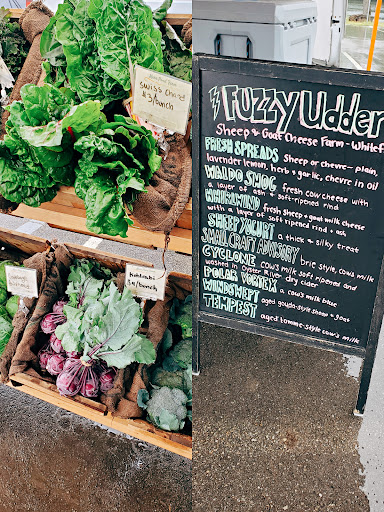 Swiss Chard
$3/bunch
Kohlrabi
$4/bunch
Fuzzy Udder
Sheep & Goat Cheese Farm - Whitef
FRESH SPREADS Sheep or chevre - plain,
lavender lemon, herb & garlic, chevre in oil
WALDO SMOG fresh cow cheese with
a layer of ash & soft-ripened rind
WHIRLWIND fresh sheep & goat milk cheese
with a layer of soft ripened rind & ash
SHEEP YOGURT a thick & silky treat
SMALL CRAFT ADVISORY brie style, cow's milk
CYCLONE a cow's milk soft ripened and
washed in Oyster River dry cider
POLAR VORTEX a cow's milk blue
WINDSWEPT aged gouda-style sheep & goat
TEMPEST aged tomme-style cow's milk